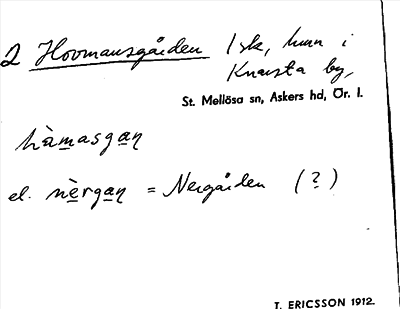 2 Hovmansgården 1 sk, hmn i
Knavsta by,
St. Mellösa sn, Askers hd, Ör. l.
hàmasgan
el. nèrgan = Nergården (?)
T. ERICSSON 1912.